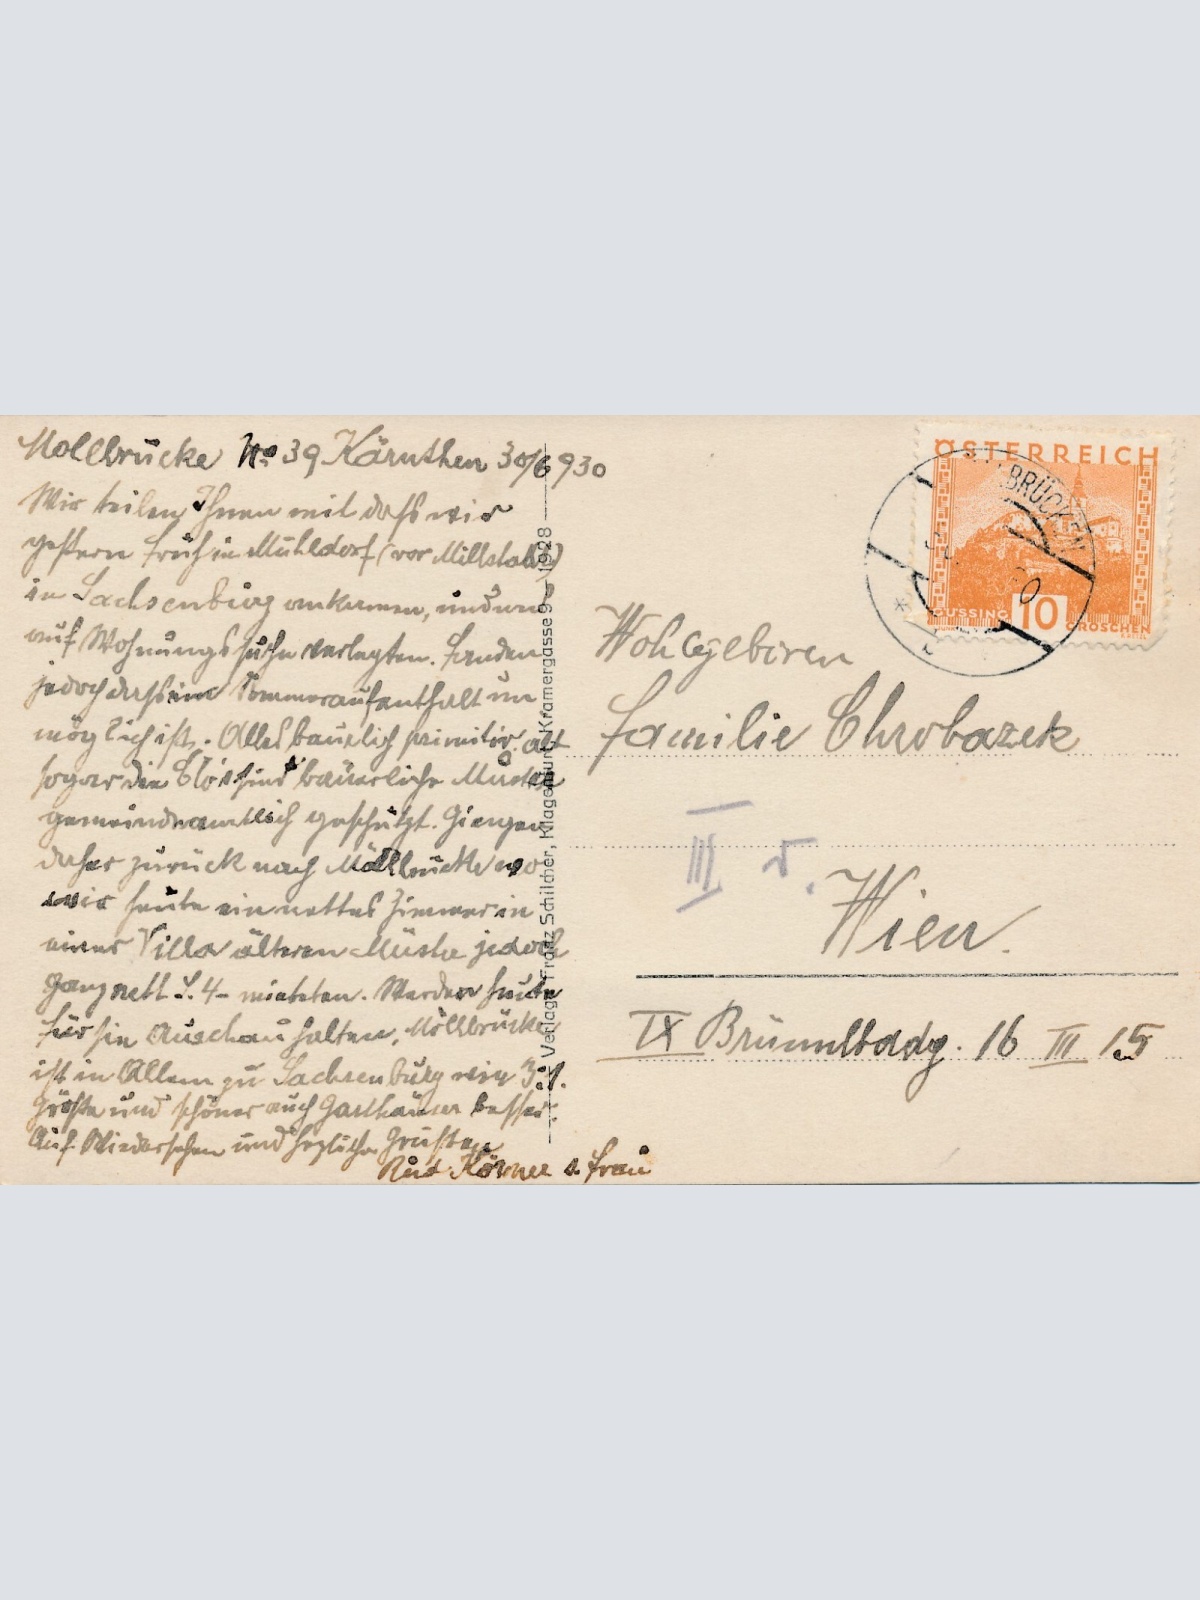 Mollbrücke No 39 Kärnthen 30/6 930
Wir teilen Ihnen mit daß wir
gestern früh in Mühldorf (vor Millstadt)
in Sachsenburg ankamen, und uns
auf Wohnungssuche verlegten. Fanden
jedoch daß ein Sommeraufenthalt un
möglich ist. Alles bauerlich primitiv, alt
sogar die Clo's sind bäuerliche Muster
gemeindeamtlich geschützt. Giengen
daher zurück nach Möllbrücke wo
wir heute ein nettes Zimmer in
einer Villa älteren Muster jedoch
ganz nett S. 4- mieteten. Werden heute
für sie Auschau halten, Möllbrücke
ist in Allem zu Sachsenburg wie 3:1.
Größe und schöner auch Gasthäuser besser.
Auf Wiedersehen und herzliche Grüße
Rud. Körner u. Frau
Verlag: Franz Schilcher, Klagenfurt, Kramergasse 9 — 1928
ÖSTERREICH
GÜSSING 10 GROSCHEN
BRÜCKEN
Wohlgeboren
Familie Chrobazek
III
Wien.
IX Brünnlbadg. 16 III 15